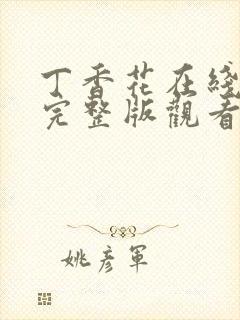 丁香花在綫
完整版觀看
姚彥軍